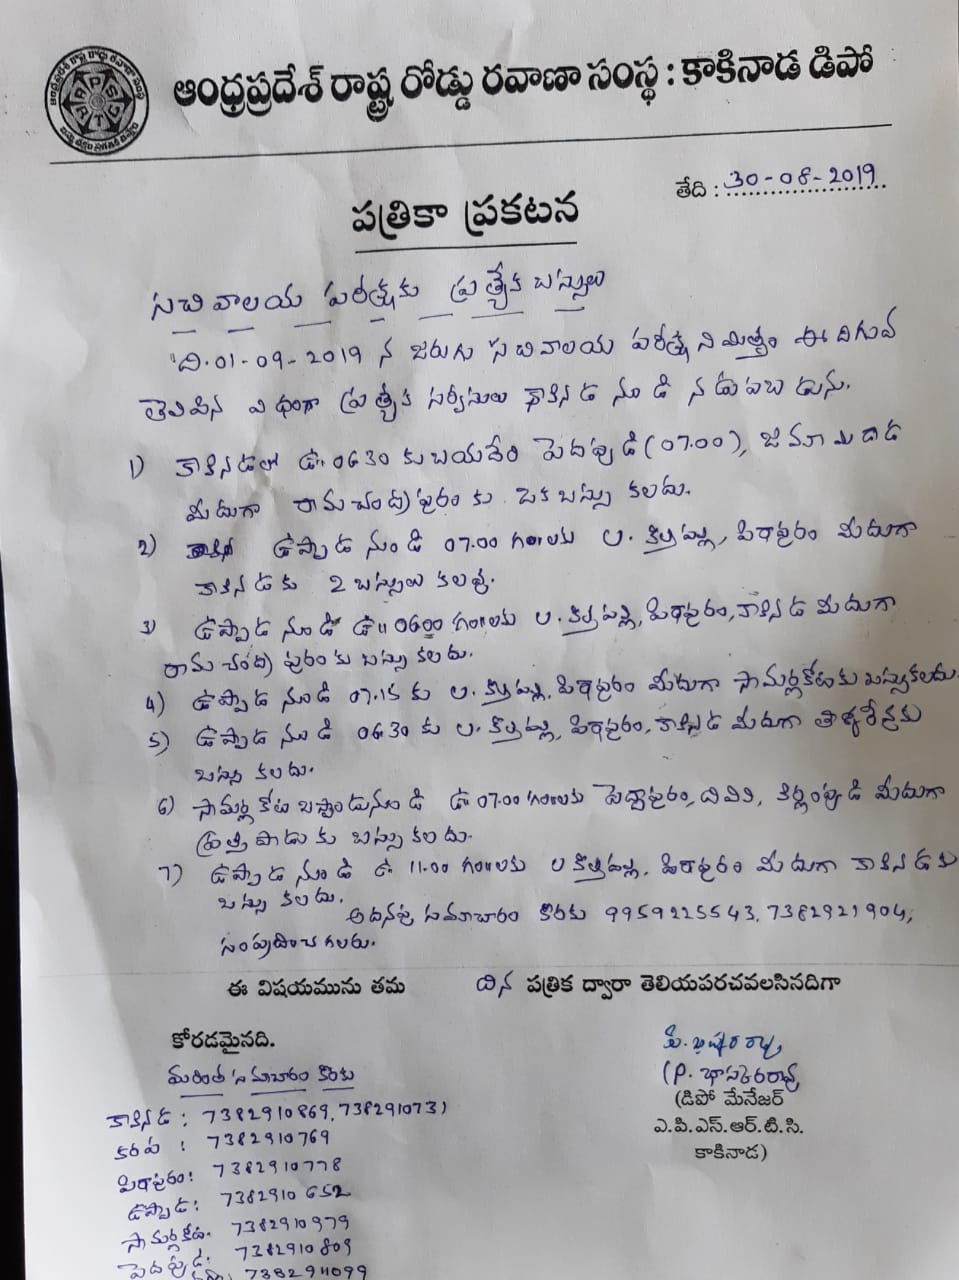 ఆంధ్రప్రదేశ్ రాష్ట్ర రోడ్డు రవాణా సంస్థ : కాకినాడ డిపో
తేది : 30-08-2019
పత్రికా ప్రకటన
సచివాలయ పరీక్షకు ప్రత్యేక బస్సులు
ది.01-09-2019 న జరుగు సచివాలయ పరీక్ష నిమిత్తం ఈ దిగువ
తెలిపిన విధంగా ప్రత్యేక సర్వీసులు కాకినాడ నుండి నడుపబడును.
1) కాకినాడలో ఉ॥ 0630 కు బయదేరి పెదపూడి (07.00),
మీదుగా రామచంద్రపురం కు ఒక బస్సు కలదు.
2) ఉప్పాడ నుండి 07.00 గం॥లకు ల. కొత్తపల్లి, పిఠాపురం మీదుగా
కాకినాడకు 2 బస్సులు కలవు.
3) ఉప్పాడ నుండి ఉ॥ 0600 గం॥లకు ల. కొత్తపల్లి, పిఠాపురం, కాకినాడ మీదుగా
రామచంద్రపురంకు బస్సు కలదు.
4) ఉప్పాడ నుండి 07.15 కు ల. కొత్తపల్లి, పిఠాపురం మీదుగా సామర్లకోటకు బస్సు కలదు.
5) ఉప్పాడ నుండి 0630 కు ల. కొత్తపల్లి, పిఠాపురం, కాకినాడ మీదుగా తాళ్ళరేవుకు
బస్సు కలదు.
6) సామర్లకోట బస్టాండు నుండి ఉ 07.00 గం॥లకు పెద్దాపురం, దివిలి, కిర్లంపూడి మీదుగా
ప్రత్తిపాడుకు బస్సు కలదు.
7) ఉప్పాడ నుండి ఉ. 11.00 గం॥లకు ల కొత్తపల్లి, పిఠాపురం మీదుగా కాకినాడకు
బస్సు కలదు.
అదనపు సమాచారం కొరకు 9959225543, 7382921904,
సంప్రదించగలరు.
ఈ విషయమును తమ దిన పత్రిక ద్వారా తెలియపరచవలసినదిగా
కోరడమైనది.
(P. భాస్కరరావు
(డిపో మేనేజర్
ఎ.పి.ఎస్.ఆర్.టి.సి.
కాకినాడ)
మరింత సమాచారం కొరకు
కాకినాడ : 7382910869, 738291073)
కరప : 7382910769
పిఠాపురం: 7382910778
ఉప్పాడ: 7382910652
సామర్లకోట. 7382910979
పెదపూడి. 7382910809
7382911099